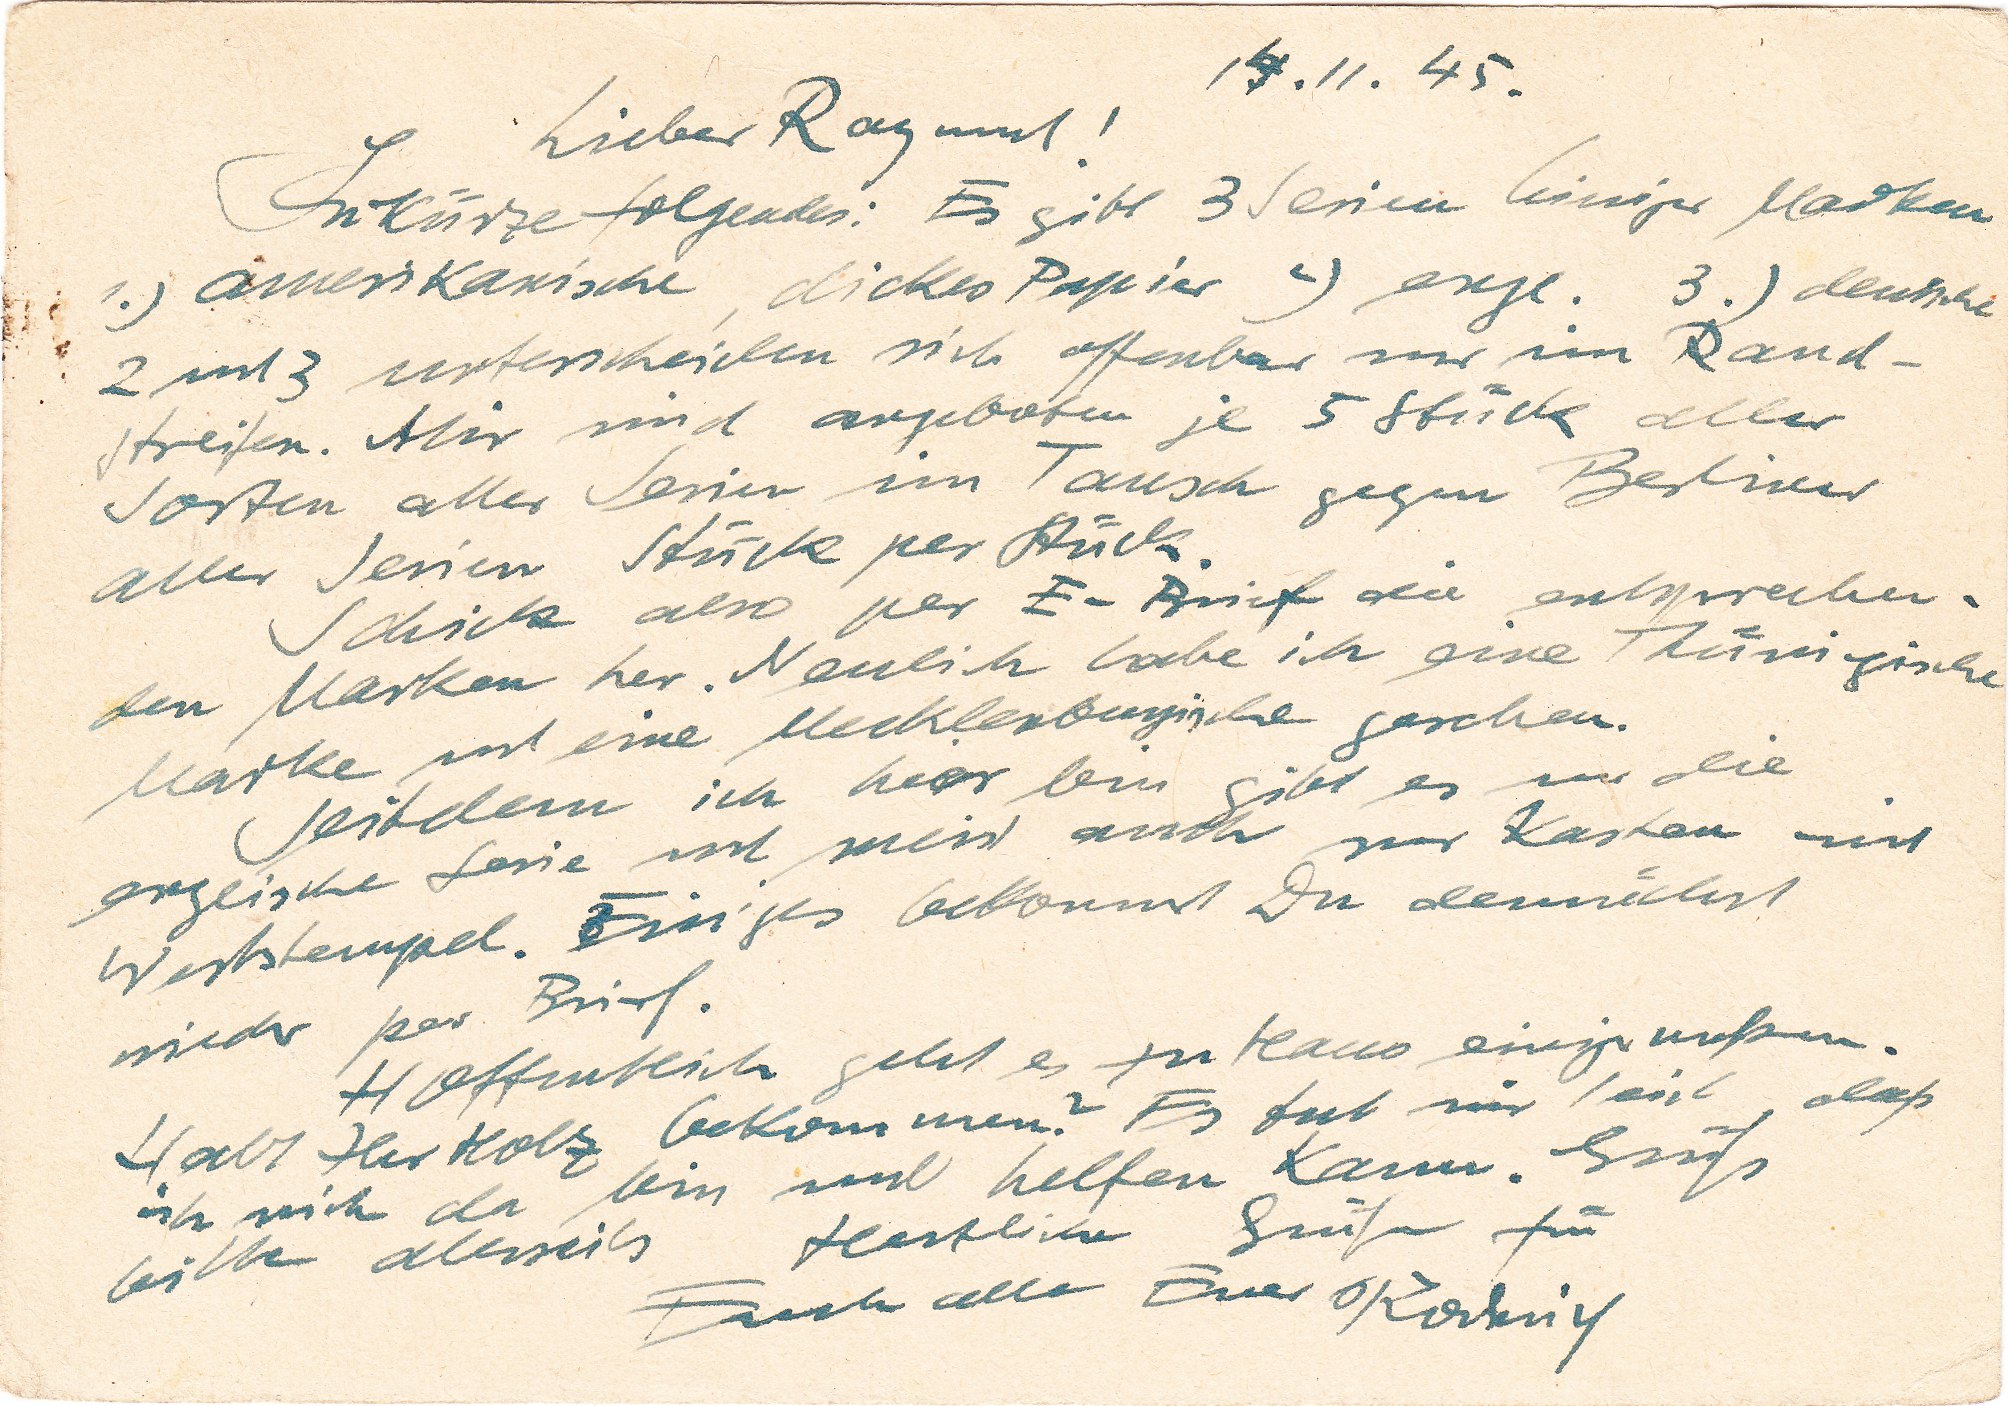 14.11.45.
Lieber Raymund!
In Kürze folgendes: Es gibt 3 Serien hiesiger Marken
1.) amerikanische, dickes Papier 2) engl. 3.) deutsche
2 und 3 unterscheiden sich offenbar nur im Rand-
streifen. Mir sind angeboten je 5 Stück aller
Sorten aller Serien im Tausch gegen Berliner
aller Serien Stück per Stück.
Schicke also per E-Brief die entsprechen-
den Marken her. Neulich habe ich eine Thüringische
Marke und eine Mecklenburgische gesehen.
Seitdem ich hier bin gibt es nur die
englische Serie und meist auch nur Karten mit
Wertstempel. Einiges bekommst Du demnächst
wieder per Brief.
Hoffentlich geht es zu Haus einigermaßen.
Habt Ihr Holz bekommen? Es tut mir leid, daß
ich nicht da bin und helfen kann. Grüß
bitte allerseits Herzliche Grüße für
Euch alle Euer